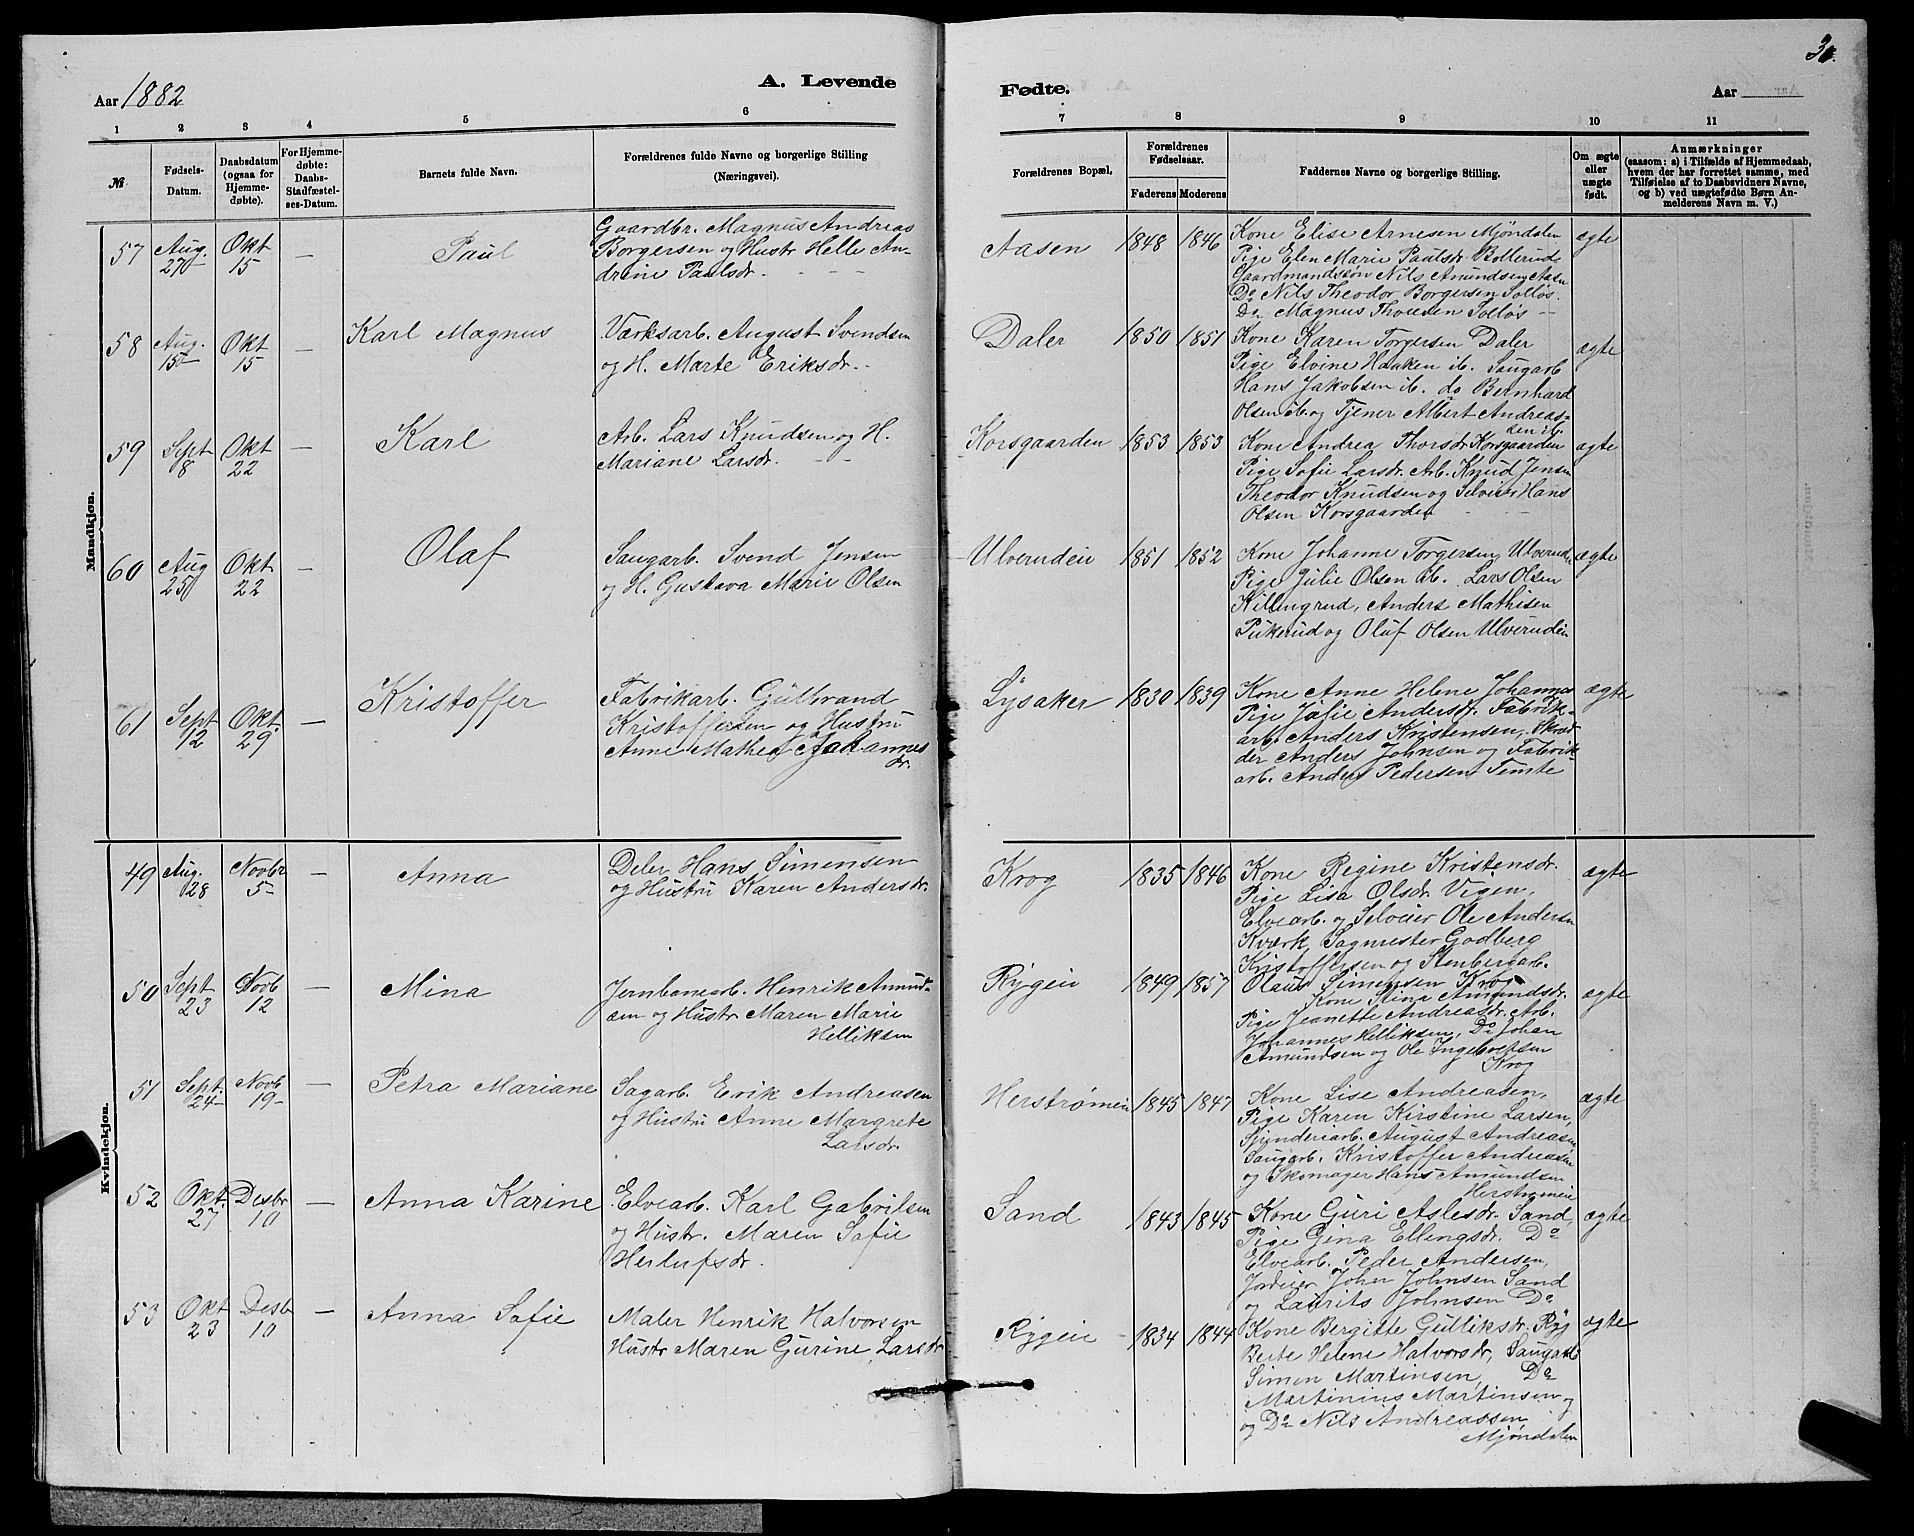 Aar 1882
A. Levende
Fødte.
Aar
3
1
2
3
4
5
6
7
8
9
10
11
№
Fødsels-
Datum.
Daabsdatum
(ogsaa for
Hjemme-
døbte).
For Hjemme-
døbte:
Daabs-
Stadfæstel-
ses-Datum.
Barnets fulde Navn.
Forældrenes fulde Navne og borgerlige Stilling
(Næringsvei).
Forældrenes Bopæl,
Forældrenes
Fødselsaar.
Faderens
Moderens
Faddernes Navne og borgerlige Stilling.
Om ægte
eller
uægte
født.
Anmærkninger
(saasom: a) i Tilfælde af Hjemmedaab,
hvem der har forrettet samme, med
Tilføielse af to Daabsvidners Navne,
og b) ved uægtefødte Børn An-
melderens Navn m. V.)
Mandkjøn.
57
Aug.
27
Okt
15
—
Paul
Gaardbr. Magnus Andreas
Borgersen og Hustr Helle An-
drine Paulsdr.
Aasen
1848
1846
Kone Elise Arnesen Mjøndalen
Pige Elen Marie Paulsdr Bollerud
Gaardmandssøn Nils Amundsen Aasen
Do Nils Theodor Borgersen Solløs.
Do Magnus Thoresen Solløs
ægte
58
Aug.
15
Okt
15
—
Karl Magnus
Værksarb. August Svendsen
og H. Marte Eriksdr.
Daler
1850
1851
Kone Karen Torgersen Daler
Pige Elvine Haaken ib. Saugarb
Hans Jakobsen ib. do Bernhard
Olsen ib. og Tjener Albert Andreas-
sen ib.
ægte
59
Sept
8
Okt
22
—
Karl
Arb. Lars Knudsen og H.
Mariane Larsdr.
Korsgaarden
1853
1853
Kone Andrea Thorsdr Korsgaarden
Pige Sofie Larsdr. Arb. Knud Jensen
Theodor Knudsen og Selveier Hans
Olsen Korsgaarden
ægte
60
Aug
25
Okt
22
—
Olaf
Saugarb. Svend Jensen
og H. Gustava Marie Olsen
Ulverudeie
1851
1852
Kone Johanne Torgersen Ulverud
Pige Julie Olsen ib. Lars Olsen
Killingrud, Anders Mathisen
Pukerud og Oluf Olsen Ulverudeie
ægte
61
Sept
12
Okt.
29
—
Kristoffer
Fabrikarb. Gulbrand
Kristoffersen og Hustru
Anne Mathea Johannes
dr.
Lysaker
1830
1839
Kone Anne Helene Johannes
Pige Julie Andersdr. Fabrik-
arb. Anders Kristensen, Skræd-
der Anders Johnsen og Fabrik-
arb. Anders Pedersen Temte
ægte
Kvindekjøn.
49
Aug.
28
Novbr
5
—
Anna
Deler Hans Simensen
og Hustru Karen Andersdr.
Krog
1835
1846
Kone Regine Kristensdr.
Pige Lisa Olsdr. Vigen,
Elvearb. og Selveier Ole Andersen
Kværk, Sagmester Godberg
Kristoffersen og Stenbergarb.
Olaus Simensen Krog
ægte
50
Sept
23
Novb
12
—
Mina
Jernbanearb. Henrik Amund-
sen og Hustr Maren Marie
Helliksen
Rygeie
1849
1857
Kone Stina Amundsdr.
Pige Jeanette Andreasdr. Arb.
Johannes Helliksen, Do Johan
Amundsen og Ole Ingebretsen
Krog
ægte
51
Sept.
24
Novb
19
—
Petra Mariane
Sagarb. Erik Andreasen
og Hustru Anne Margrete
Larsdr.
Herstrømeie
1845
1847
Kone Lise Andreasen,
Pige Karen Kirstine Larsen,
Spinderiarb. August Andreasen
Saugarb. Kristoffer Andreasen
og Skomager Hans Amundsen
Herstrømeie
ægte
52
Okt.
27
Desbr
10
—
Anna Karine
Elvearb. Karl Gabrilsen
og Hustr. Maren Sofie
Herlufsdr.
Sand
1843
1845
Kone Guri Aslesdr. Sand,
Pige Gina Ellingsdr. Do
Elvearb. Peder Andersen,
Jordeier Joher Johnsen Sand
og Laurits Johnsen Do
ægte
53
Okt
23
Desb
10
—
Anna Sofie
Maler Henrik Halvorsen
Hustr Maren Gurine Larsdr
Rygeie
1834
1844
Kone Bergitte Gulliksdr. Ryg
Berte Helene Halvorsdr, Saugarb
Simen Martinsen, Do
Martinius Martinsen og
og Do Nils Andreassen
Mjøndalen
ægte